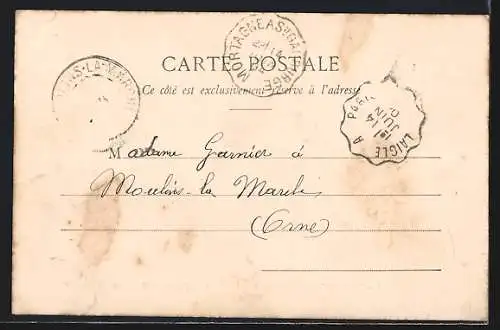 MORTAGNE A Ste GAUBURGE
CARTE POSTALE
Ce côté est exclusivement réservé à l'adresse
MOULINS-LA-MARCHE
LAIGLE A PARIS
1º 14
JUIN
02
Madame Garnier à
Moulins-la Marche
(Orne)